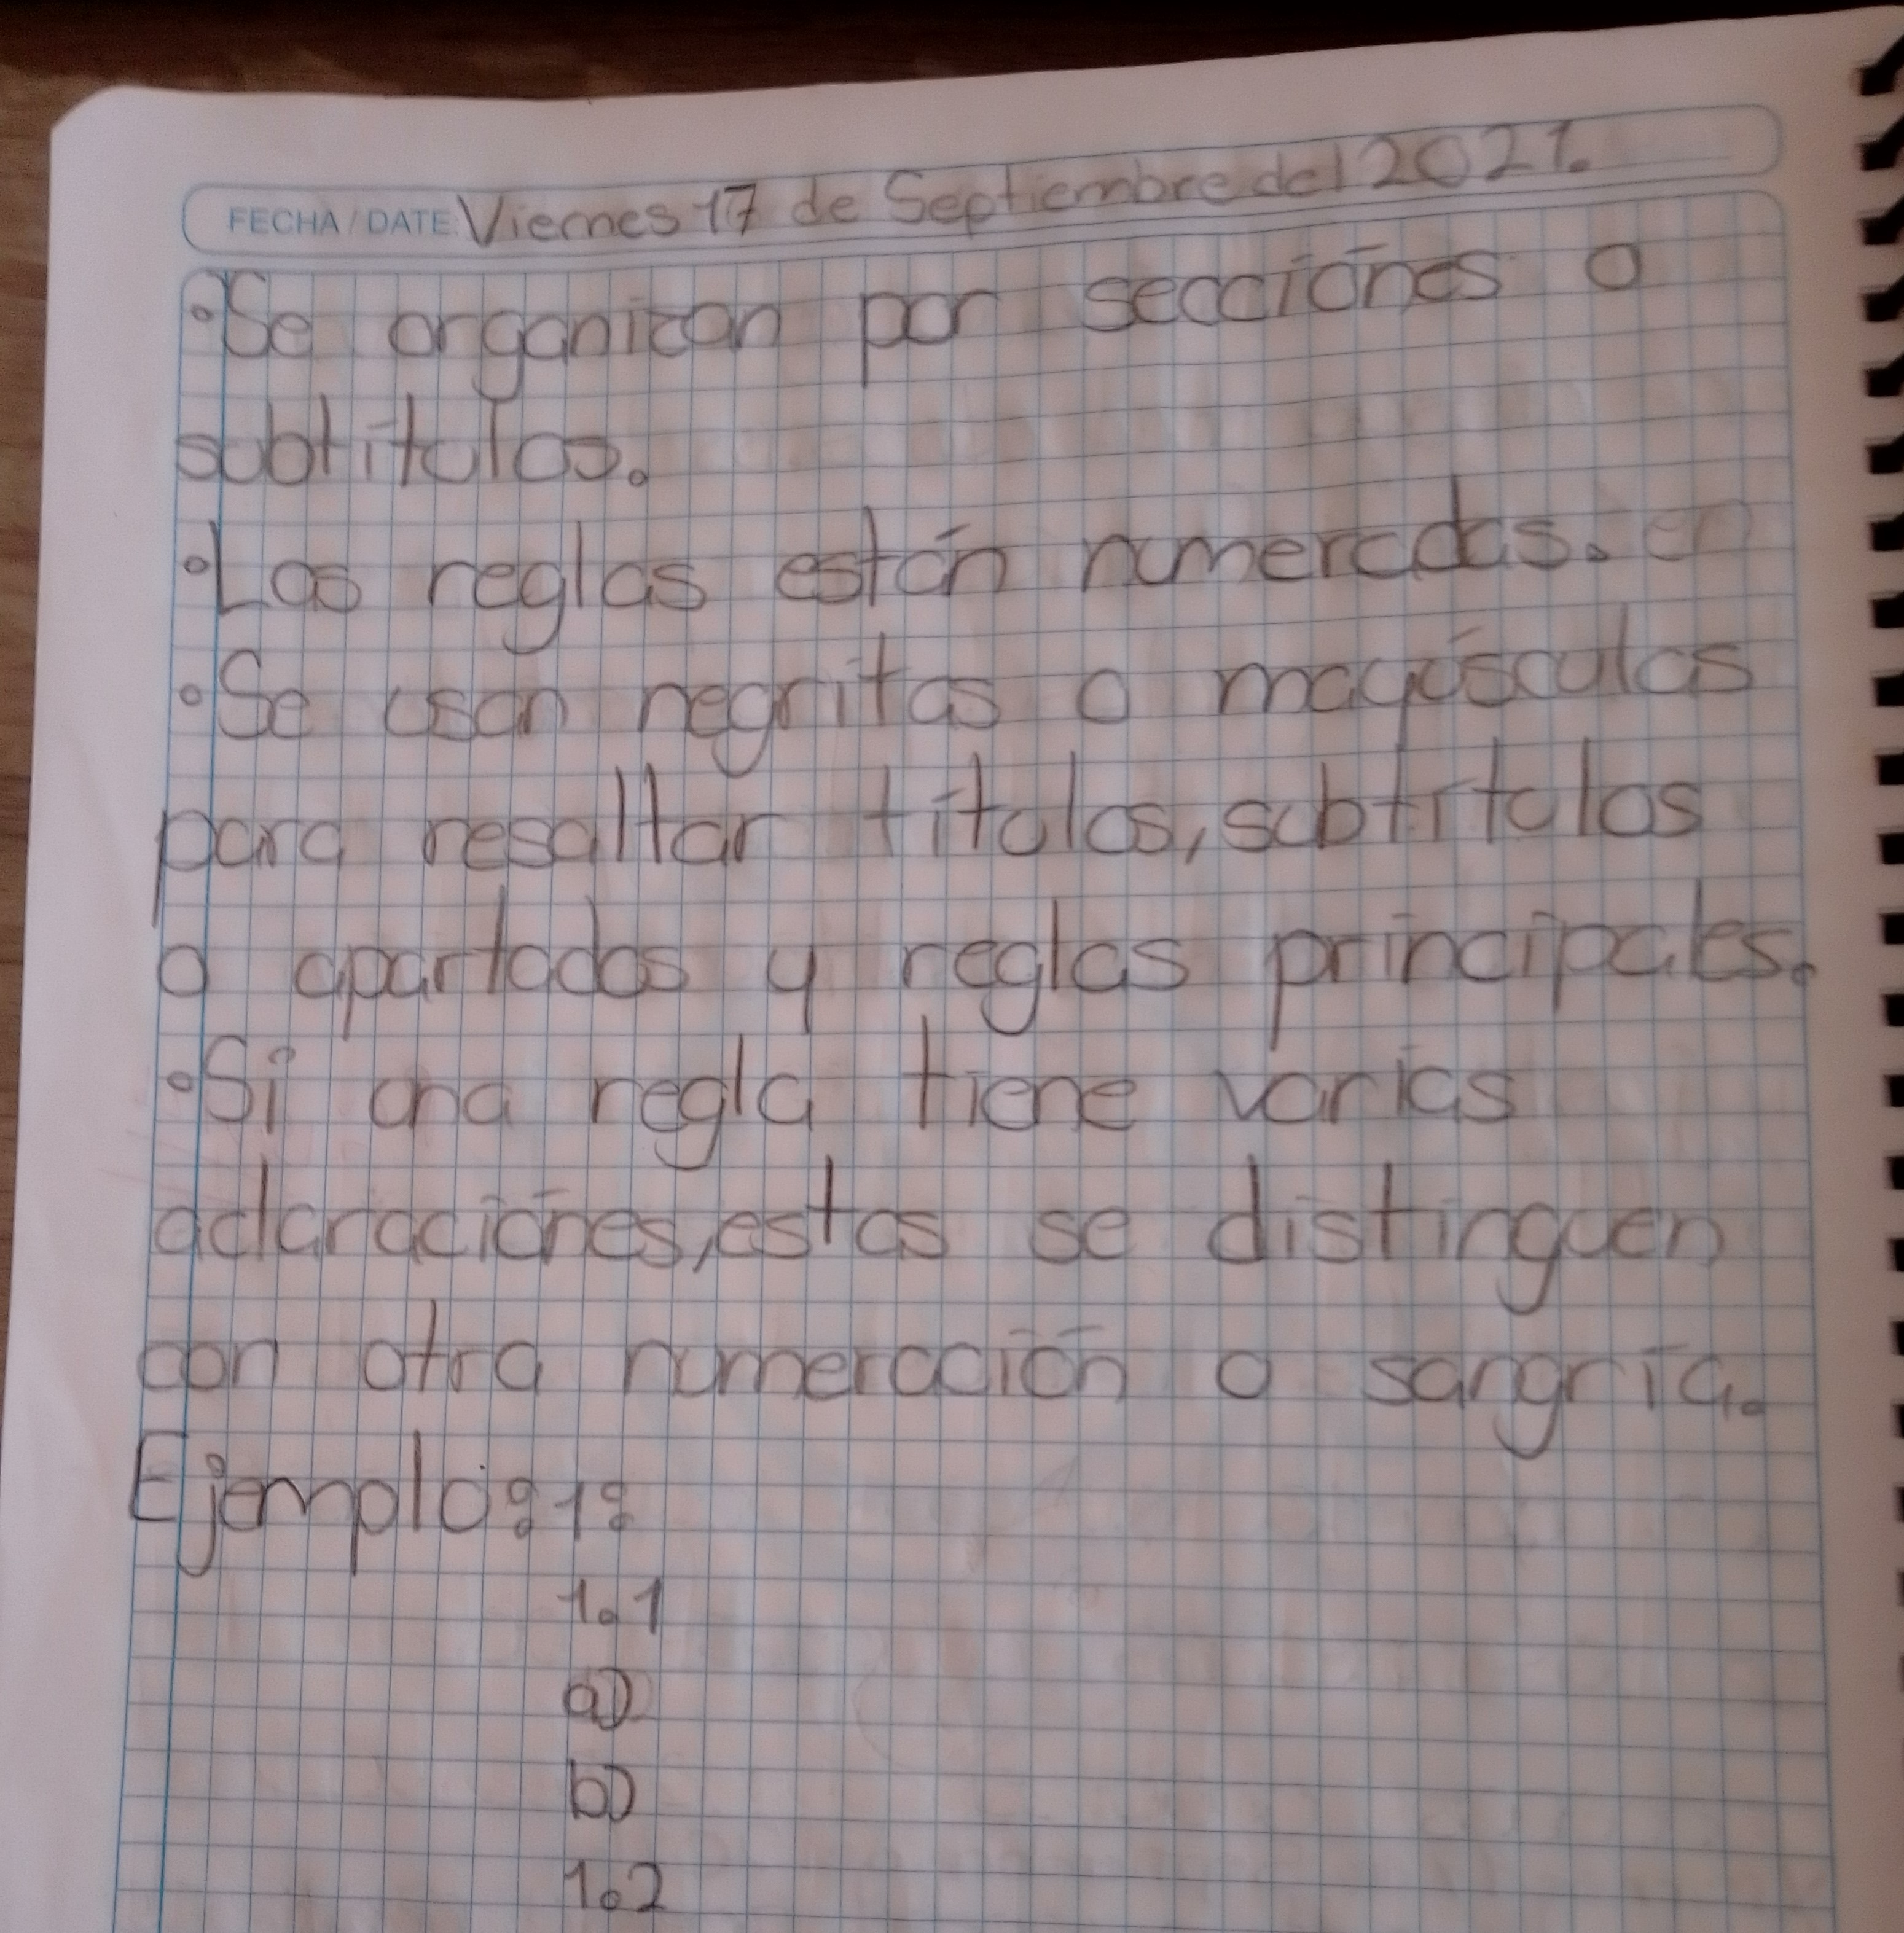 FECHA/DATE: Viernes 17 de Septiembre del 2021.
•Se organizan por secciónes o
subtítulos.
•Las reglas están numeradas. en
•Se usan negritas o mayúsculas
para resaltar títulos, subtítulos
o apartados y reglas principales.
•Si una regla tiene varias
aclaraciónes, estas se distinguen
con otra numeración o sangría.
Ejemplo: 1:
1.1
a)
b)
1.2